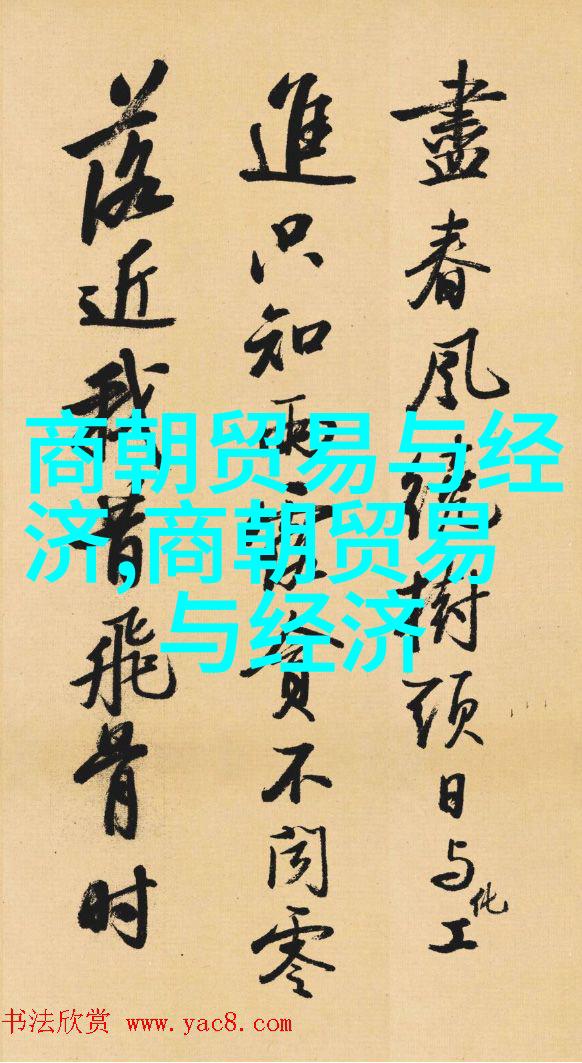 盡春風繞樹頭日与化工
進只知雨露貪不聞零
落近我昔飛骨时
商朝贸易与经
济,商朝贸易
与经济
书法欣赏 www.yac8.com